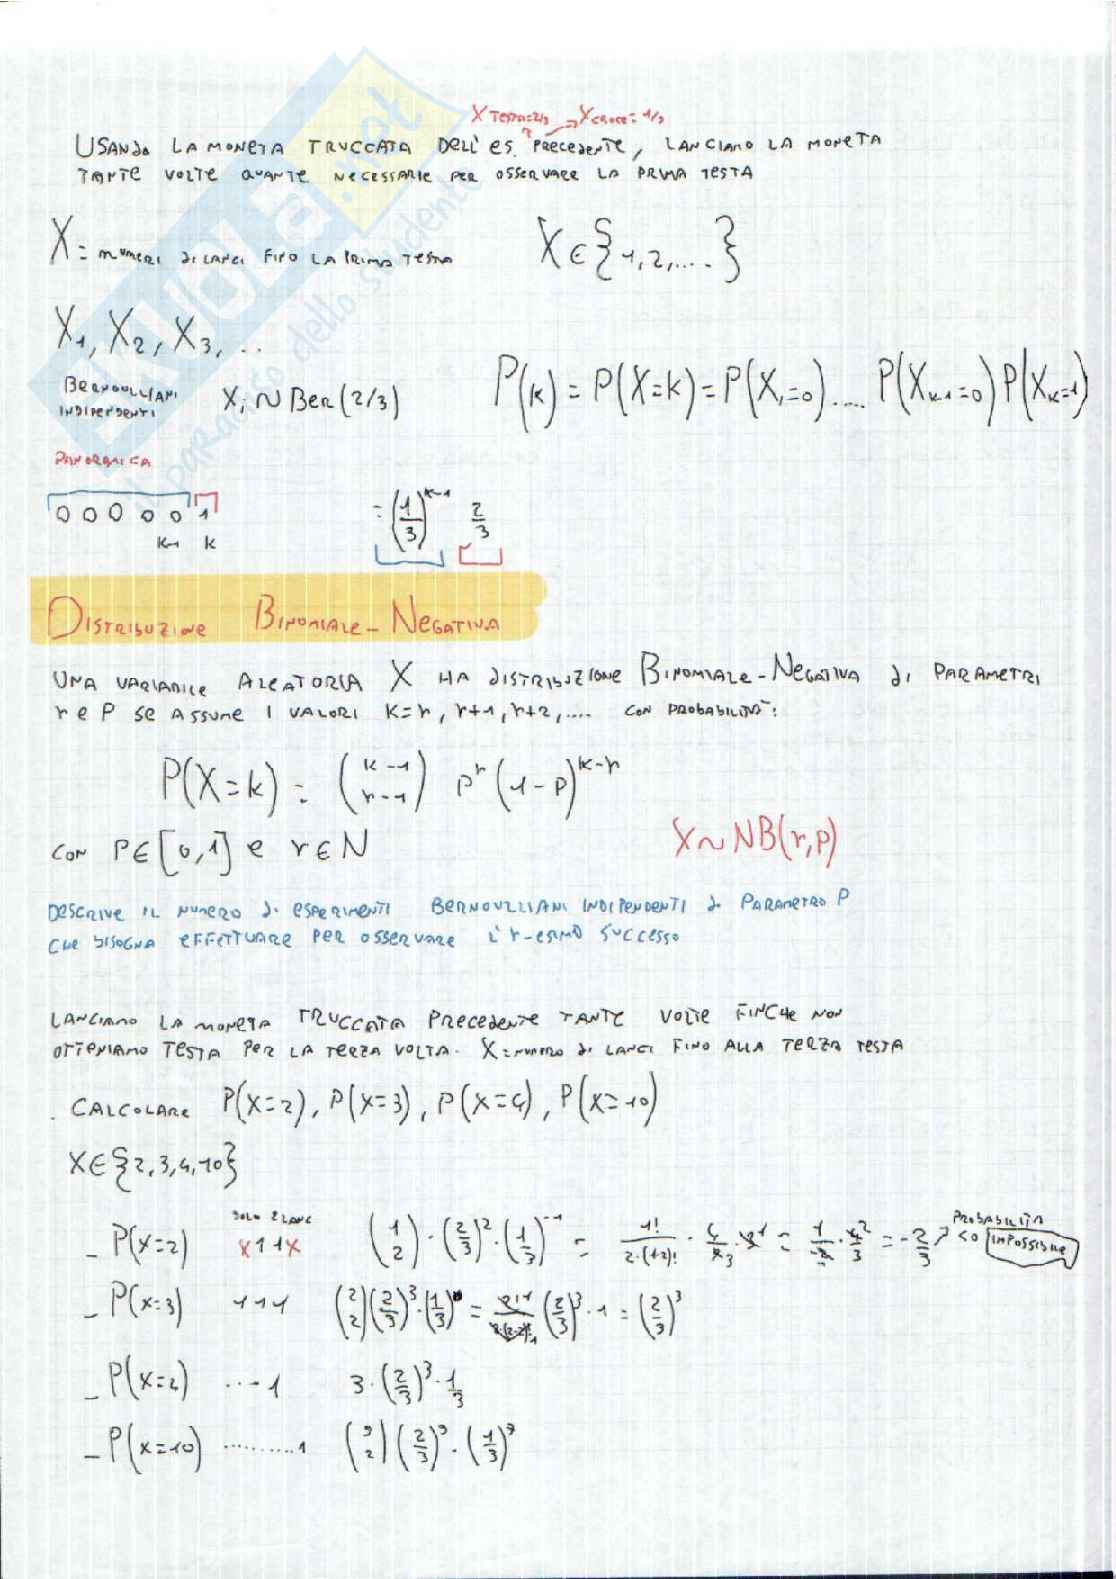 X TESTA=2/3 → X CROCE=1/3
USANDO LA MONETA TRUCCATA DELL'ES. PRECEDENTE, LANCIAMO LA MONETA
TANTE VOLTE QUANTE NECESSARIE PER OSSERVARE LA PRIMA TESTA
X = NUMERI DI LANCI FINO LA PRIMA TESTA X ∈ {1,2,....}
X1, X2, X3, ..
BERNOULLIANI INDIPENDENTI Xi ~ Ber(2/3) P(k) = P(X=k) = P(X1=0)..... P(Xk-1=0) P(Xk=1)
PANORAMICA
0 0 0 0 0 1 = (1/3)^k-1 2/3
k-1 k
DISTRIBUZIONE BINOMIALE-NEGATIVA
UNA VARIABILE ALEATORIA X HA DISTRIBUZIONE BINOMIALE-NEGATIVA DI PARAMETRI
r e P SE ASSUME I VALORI K=r, r+1, r+2, .... CON PROBABILITÀ:
P(X=k) = (k-1 r-1) p^r (1-p)^k-r
CON P∈[0,1] e r∈N X~NB(r,p)
DESCRIVE IL NUMERO DI ESPERIMENTI BERNOULLIANI INDIPENDENTI DI PARAMETRO P
CHE BISOGNA EFFETTUARE PER OSSERVARE L'r-ESIMO SUCCESSO
LANCIAMO LA MONETA TRUCCATA PRECEDENTE TANTE VOLTE FINCHE NON
OTTENIAMO TESTA PER LA TERZA VOLTA. X=NUMERO DI LANCI FINO ALLA TERZA TESTA
. CALCOLARE P(X=2), P(X=3), P(X=4), P(X=10)
X∈{2,3,4,10}
SOLO 2 LANC PROBABILITÀ
- P(X=2) x11x (1 2)·(2/3)^2·(1/3)^-1 = 1!/2·(1-2)! · 4/ · = 1/-2 · 2/3 = -2/3 <0 IMPOSSIBILE
- P(X=3) 111 (2 2)(2/3)^3·(1/3)^0 = (2/3)^3·1 = (2/3)^3
- P(X=4) ...1 3·(2/3)^3·1/3
- P(X=10) .........1 (9 2)(2/3)^3·(1/3)^7